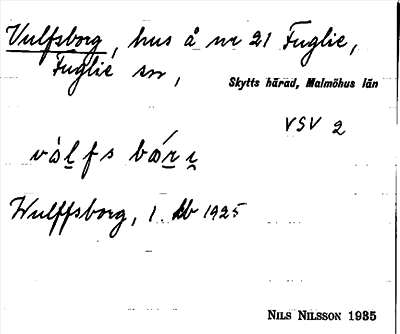 Vulfsborg, hus å nr 21 Fuglie,
Fuglie sn,
Skytts härad, Malmöhus län
VSV 2
Wulffsborg, 1. lb 1925
NILS NILSSON 1935